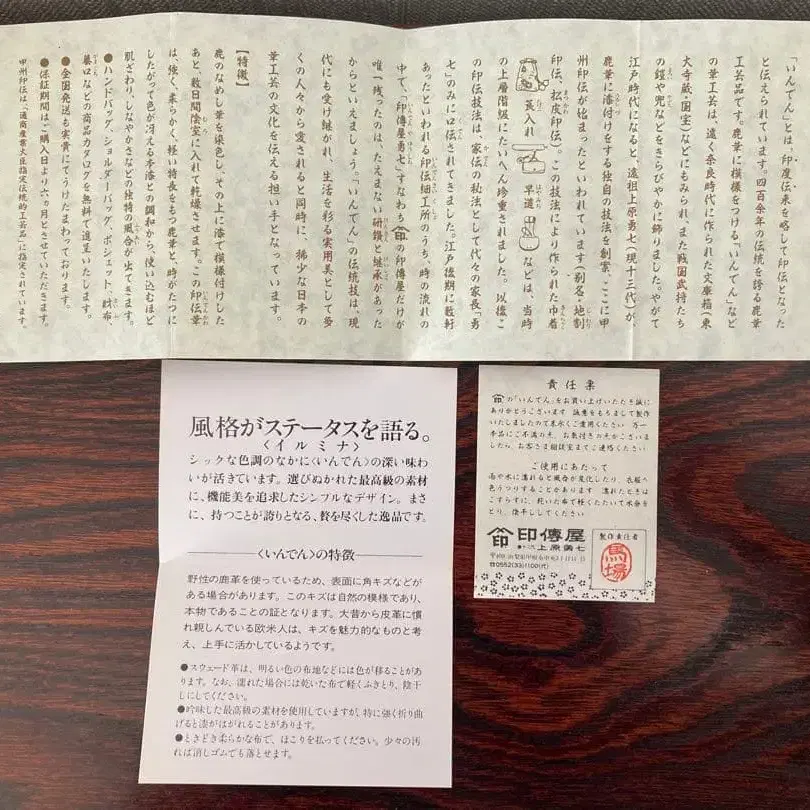 「いんでん」とは、印度伝来を略して印伝となった
と伝えられています。四百余年の伝統を誇る鹿革
工芸品です。鹿革に模様をつける「いんでん」など
の革工芸は、遠く奈良時代に作られた文庫箱(東
大寺蔵・国宝)などにもみられ、また戦国武将たち
の鎧や兜などをきらびやかに飾りました。やがて
江戸時代になると、遠祖上原勇七(現十三代)が、
鹿革に漆付けをする独自の技法を創案、ここに甲
州印伝が始まったといわれています(別名・地割
印伝、松皮印伝)。この技法により作られた巾着
莨入れ 早道 などは、当時
の上層階級にたいへん珍重されました。以後こ
の印伝技法は、家伝の秘法として代々の家長「勇
七」のみに口伝されてきました。江戸後期に数軒
あったといわれる印伝細工所のうち、時の流れの
中で、「印傳屋勇七」すなわち印の印傳屋だけが
唯一残ったのは、たえまない研鑽と継承があった
からといえましょう。「いんでん」の伝統技は、現
代にも受け継がれ、生活を彩る実用美として多
くの人々から愛されると同時に、稀少な日本の
革工芸の文化を伝える担い手となっています。
【特徴】
鹿のなめし革を染色し、その上に漆で模様付けした
あと、数日間陰室に入れて乾燥させます。この印伝革
は、強く、柔らかく、軽い特長をもつ鹿革と、時がたつに
したがって色が冴える本漆との調和から、使い込むほど
肌ざわり、しなやかさなどの独特の風合が出てきます。
●ハンドバッグ、ショルダーバッグ、ポシェット、財布
蟇口などの商品カタログを無料で進呈いたします。
●全国発送も実費にてうけたまわっております。
●保証期間は、ご購入日より六ヵ月とさせていただきます。
甲州印伝は「通商産業大臣指定伝統的工芸品」に指定されています。
風格がステータスを語る。
〈イルミナ〉
シックな色調のなかに〈いんでん〉の深い味わ
いが活きています。選びぬかれた最高級の素材
に、機能美を追求したシンプルなデザイン。まさ
に、持つことが誇りとなる、贅を尽くした逸品です。
〈いんでん〉の特徴
野性の鹿革を使っているため、表面に角キズなどが
ある場合があります。このキズは自然の模様であり、
本物であることの証となります。大昔から皮革に慣
れ親しんでいる欧米人は、キズを魅力的なものと考
え、上手に活かしているようです。
●スウェード革は、明るい色の布地などには色が移ることがあ
ります。なお、濡れた場合には乾いた布で軽くふきとり、陰干
しにしてください。
●吟味した最高級の素材を使用していますが、特に強く折り曲
げると漆がはがれることがあります。
●ときどき柔らかな布で、ほこりを払ってください。少々の汚
れは消しゴムでも落とせます。
責任票
印の「いんでん」をお買い上げいただき誠に
ありがとうございます 誠意をもちまして製作
いたしましたので末永くご愛用ください 万一
本品にご不満の点、お気付きの点がございま
したら、お客さま相談室までご連絡ください
ご使用にあたって
雨や水に濡れると風合が変化したり、衣服へ
色うつりすることがあります 濡れたときは
こすらずに、乾いた布で軽くたたいて水分を
とり、陰干ししてください
印 印傳屋
上原勇七
☎0552(33)1100(代)
製作責任者
馬場